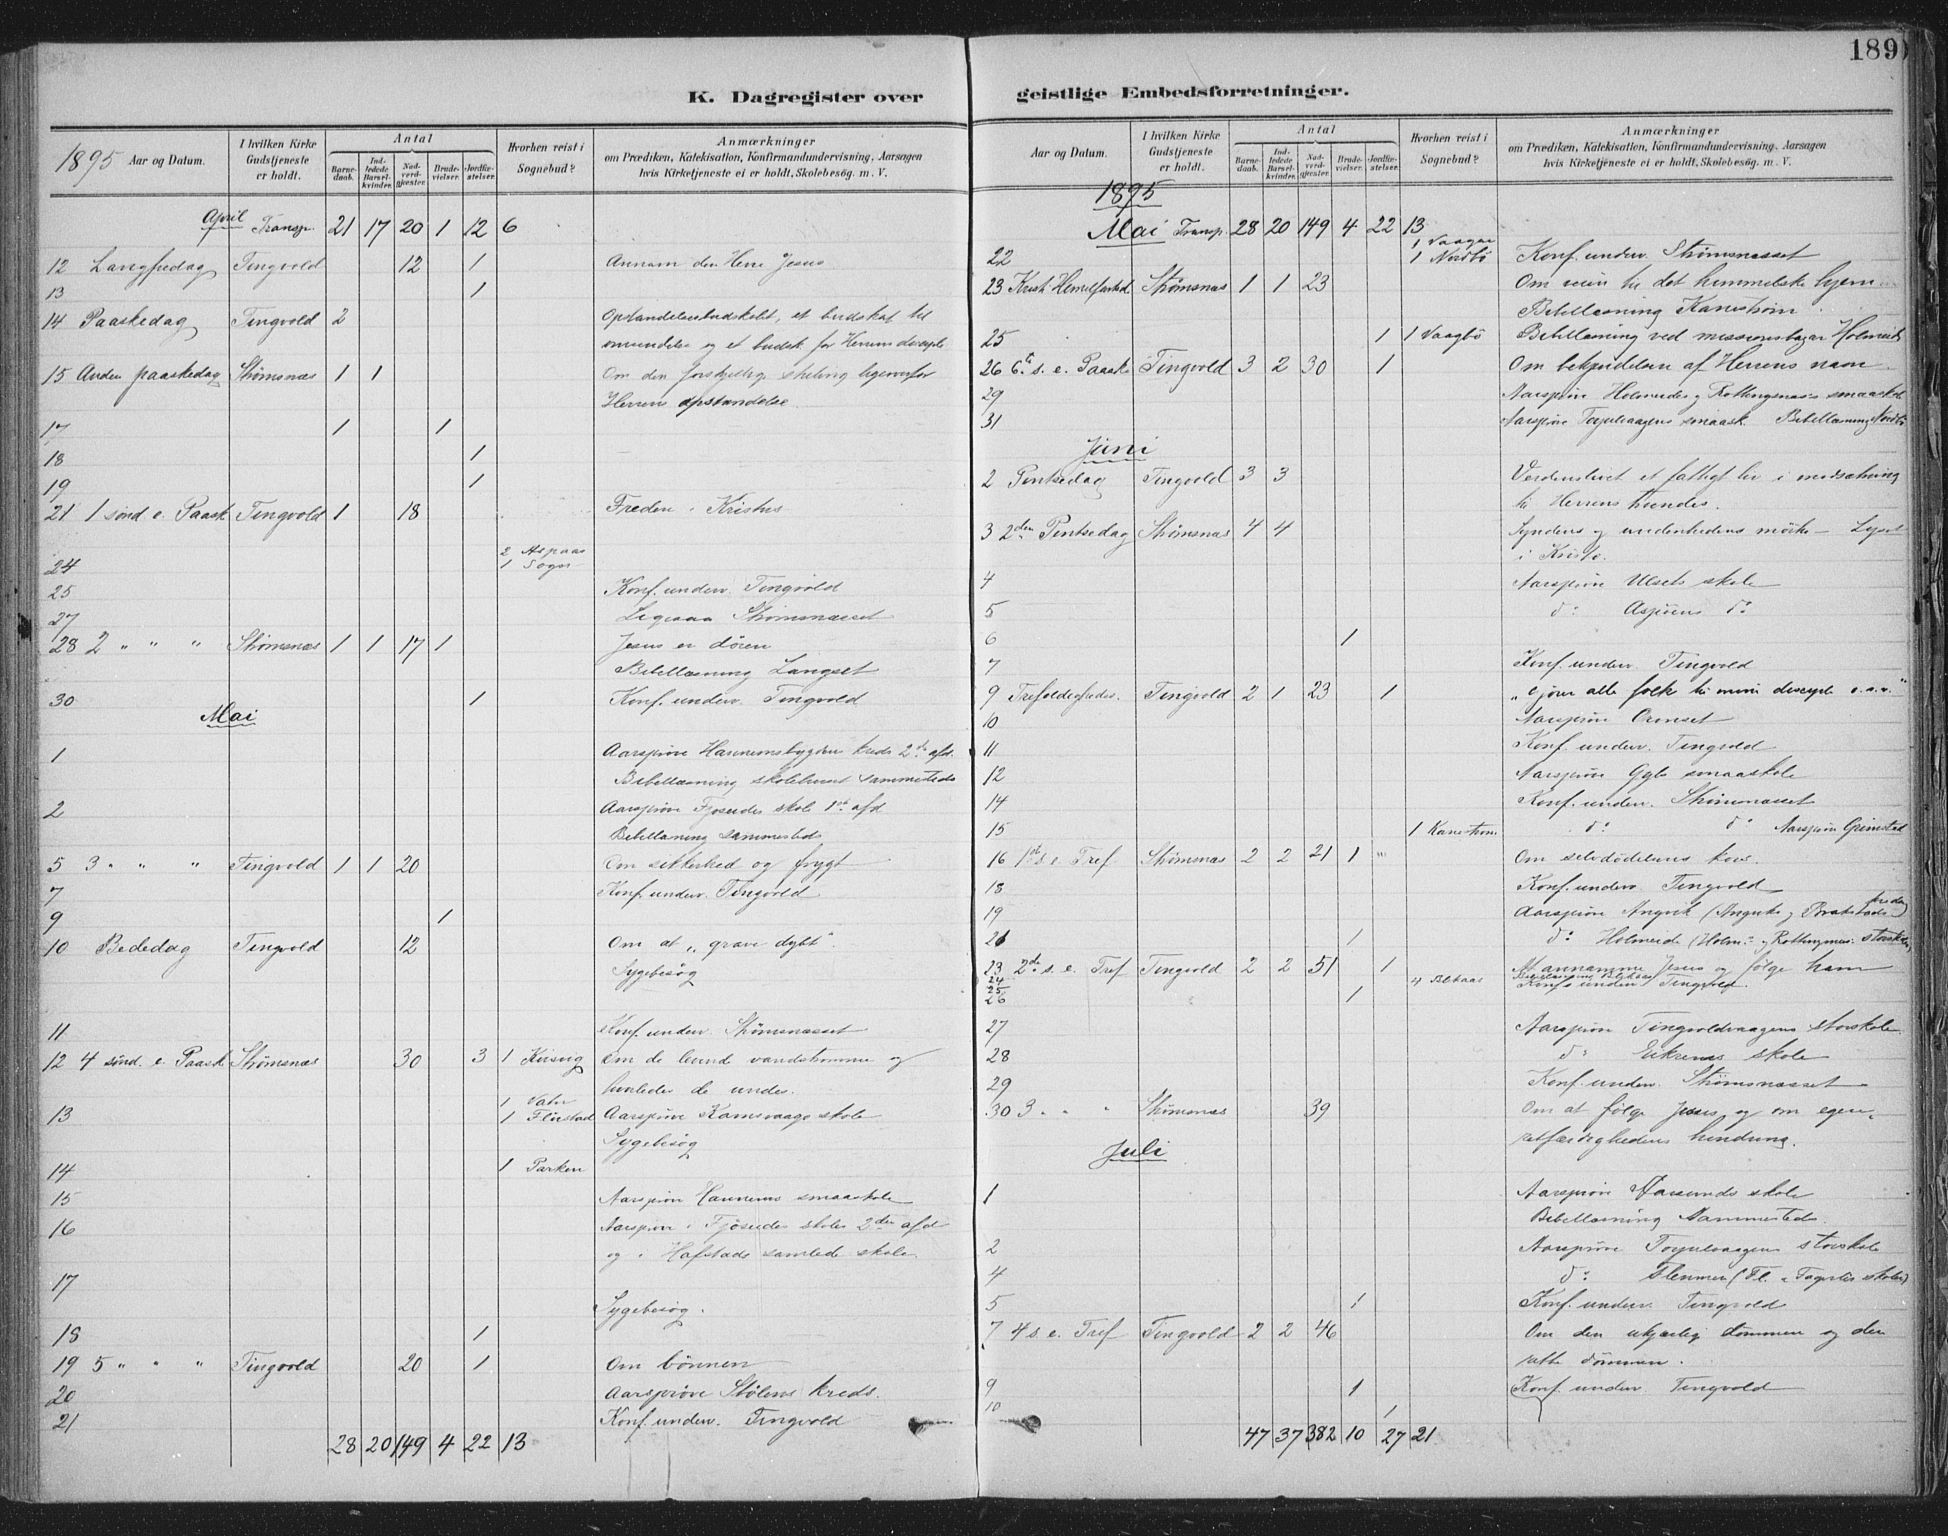 189
K. Dagregister over
1895 Aar og Datum.
I hvilken Kirke Gudstjeneste er holdt.
Antal
Barnedaab.
Indledede Barselkvinder.
Nadverdgjester.
Brudevielser.
Jordfæstelser.
Hvorhen reist i Sognebud?
Anmærkninger
om Prædiken, Katekisation, Konfirmandundervisning, Aarsagen
hvis Kirketjeneste ei er holdt, Skolebesög. m. V.
April Transp. 21 17 20 1 12 6
12 Langfredag Tingvold 12 1 Annam den Herre Jesus
13 1
14 Paaskedag Tingvold 2 Opstandelsesbudskabet, et budskab til
omvendelse og et budsk. for Herrens disciple
15 Anden paaskedag Strømsnæs 1 1 Om den forskjellige stilling ligeoverfor
Herrens opstandelse
17 1 1
18 1
19 1
21 1 sønd e. Paask Tingvold 1 18 Freden i Kristus
2 Aspaas
24 1 Sogn
25 Konf. underv. Tingvold
27 Ligesaa Strømsnæsset
28 2 " " " Strømsnæs 1 1 17 1 Jesus er døren
Bibellæsning Langset
30 1 Konf. underv. Tingvold
Mai
1 Aarsprøve Hannemsbygdens kreds 2den afd.
Bibellæsning skolehuset sammesteds
2 Aarsprøve Fjøseides skole 1ste afd
Bibellæsning sammesteds
5 3 " " " Tingvold 1 1 20 Om sikkerhed og frygt
7 Konf. underv. Tingvold
9 1
10 Bededag Tingvold 12 Om at "grave dybt".
Sygebesøg
11 Konf. underv. Strømsnæsset
12 4 sønd. e. Paask Strømsnæs 30 3 1 Kvisvig Om de levende vandstrømme og
hvorledes de
1 Vatn
13 1 Fløstad Aarsprøve Kamsvaags skole
Sygebesøg
14 1 Parken
15 Aarsprøve Hannems smaaskole
16 Aarsprøve i Fjøseides skoles 2den afd
og i Hafstads samlede skole
17
Sygebesøg.
18 1
19 5 " " " Tingvold 20 1 Om bønnen
20 Aarsprøve Stølens kreds.
21 Konf. underv. Tingvold
28 20 149 4 22 13
geistlige Embedsforretninger.
Aar og Datum.
I hvilken Kirke Gudstjeneste er holdt.
Antal
Barnedaab.
Indledede Barselkvinder.
Nadverdgjester.
Brudevielser.
Jordfæstelser.
Hvorhen reist i Sognebud?
Anmærkninger
om Prædiken, Katekisation, Konfirmandundervisning, Aarsagen
hvis Kirketjeneste ei er holdt, Skolebesög. m. V.
1895
Mai Transp 28 20 149 4 22 13
1 Vaagen
22 1 Nordbø Konf. underv. Strømsnæsset
23 Krist Himelfartsd Strømsnæs 1 1 23 Om veien til det himmelske hjem
Bibellæsning Kanestrøm
25 1 1 Vaagbø Bibellæsning ved missionsdagen Holmeide
26 6te s. e. Paask Tingvold 3 2 30 1 Om bekjendelsen af Herrens navn
29 Aarsprøve Holmeides og Rottingsnæs's smaaskole
31 Aarsprøve Torjulvaagens smaask. Bibellæsning Nordbø
Juni
2 Pintsedag Tingvold 3 3 Verdenslivet et fattigt liv i modsætning
til Herrens
3 2den Pintsedag Strømsnæs 4 4 Syndens og mørke Lyset
i Kristo.
4 Aarsprøve Ulsets skole
5 do Aspøens do
6 1
7 Konf. underv. Tingvold
9 Trefoldigheds. Tingvold 2 1 23 1 "Gjører alle folk til mine disciple o.s.v."
10 Aarsprøve Ormset
11 Konf. underv. Tingvold
12 Aarsprøve Gyls smaaskole
14 Konf. underv. Strømsnæsset
15 1 Kanestrøm do do Aarsprøve Grimstad
16 1ste s. e. Tref Strømsnæs 2 2 21 1 " Om selvdødelsens kors.
18 Konf. underv. Tingvold
19 Aarsprøve Angvik (Angviks og Brakstads kreds)
21 1 do Holmeide (Holm: og Rottingsnæs: storskole)
23 2den s. e. Tref Tingvold 2 2 51 1 At annamme Jesus og følge ham
24 4 Blekaas Bibellæsning Blekaas
25 Konf. underv. Tingvold.
26 1
27 Aarsprøve Tingvoldvaagens storskole
28 do Eikrems skole
29 Konf. underv. Strømsnæsset
30 3 " " " Strømsnæs 39 Om at følge Jesus, og om egen-
retfærdighedens hindring.
Juli
1 Aarsprøve Aarsunds skole
Bibellæsning Sammesteds.
2 Aarsprøve Torjulvaagens storskole
4 do Flemmen (Fl. skoler)
5 1 Konf. underv. Tingvold
7 4 s. e. Tref Tingvold 2 2 46 Om den ukjærlig dømmen og den
rette dømmen.
9 1 Konf. underv. Tingvold
10 1
47 37 382 10 27 21